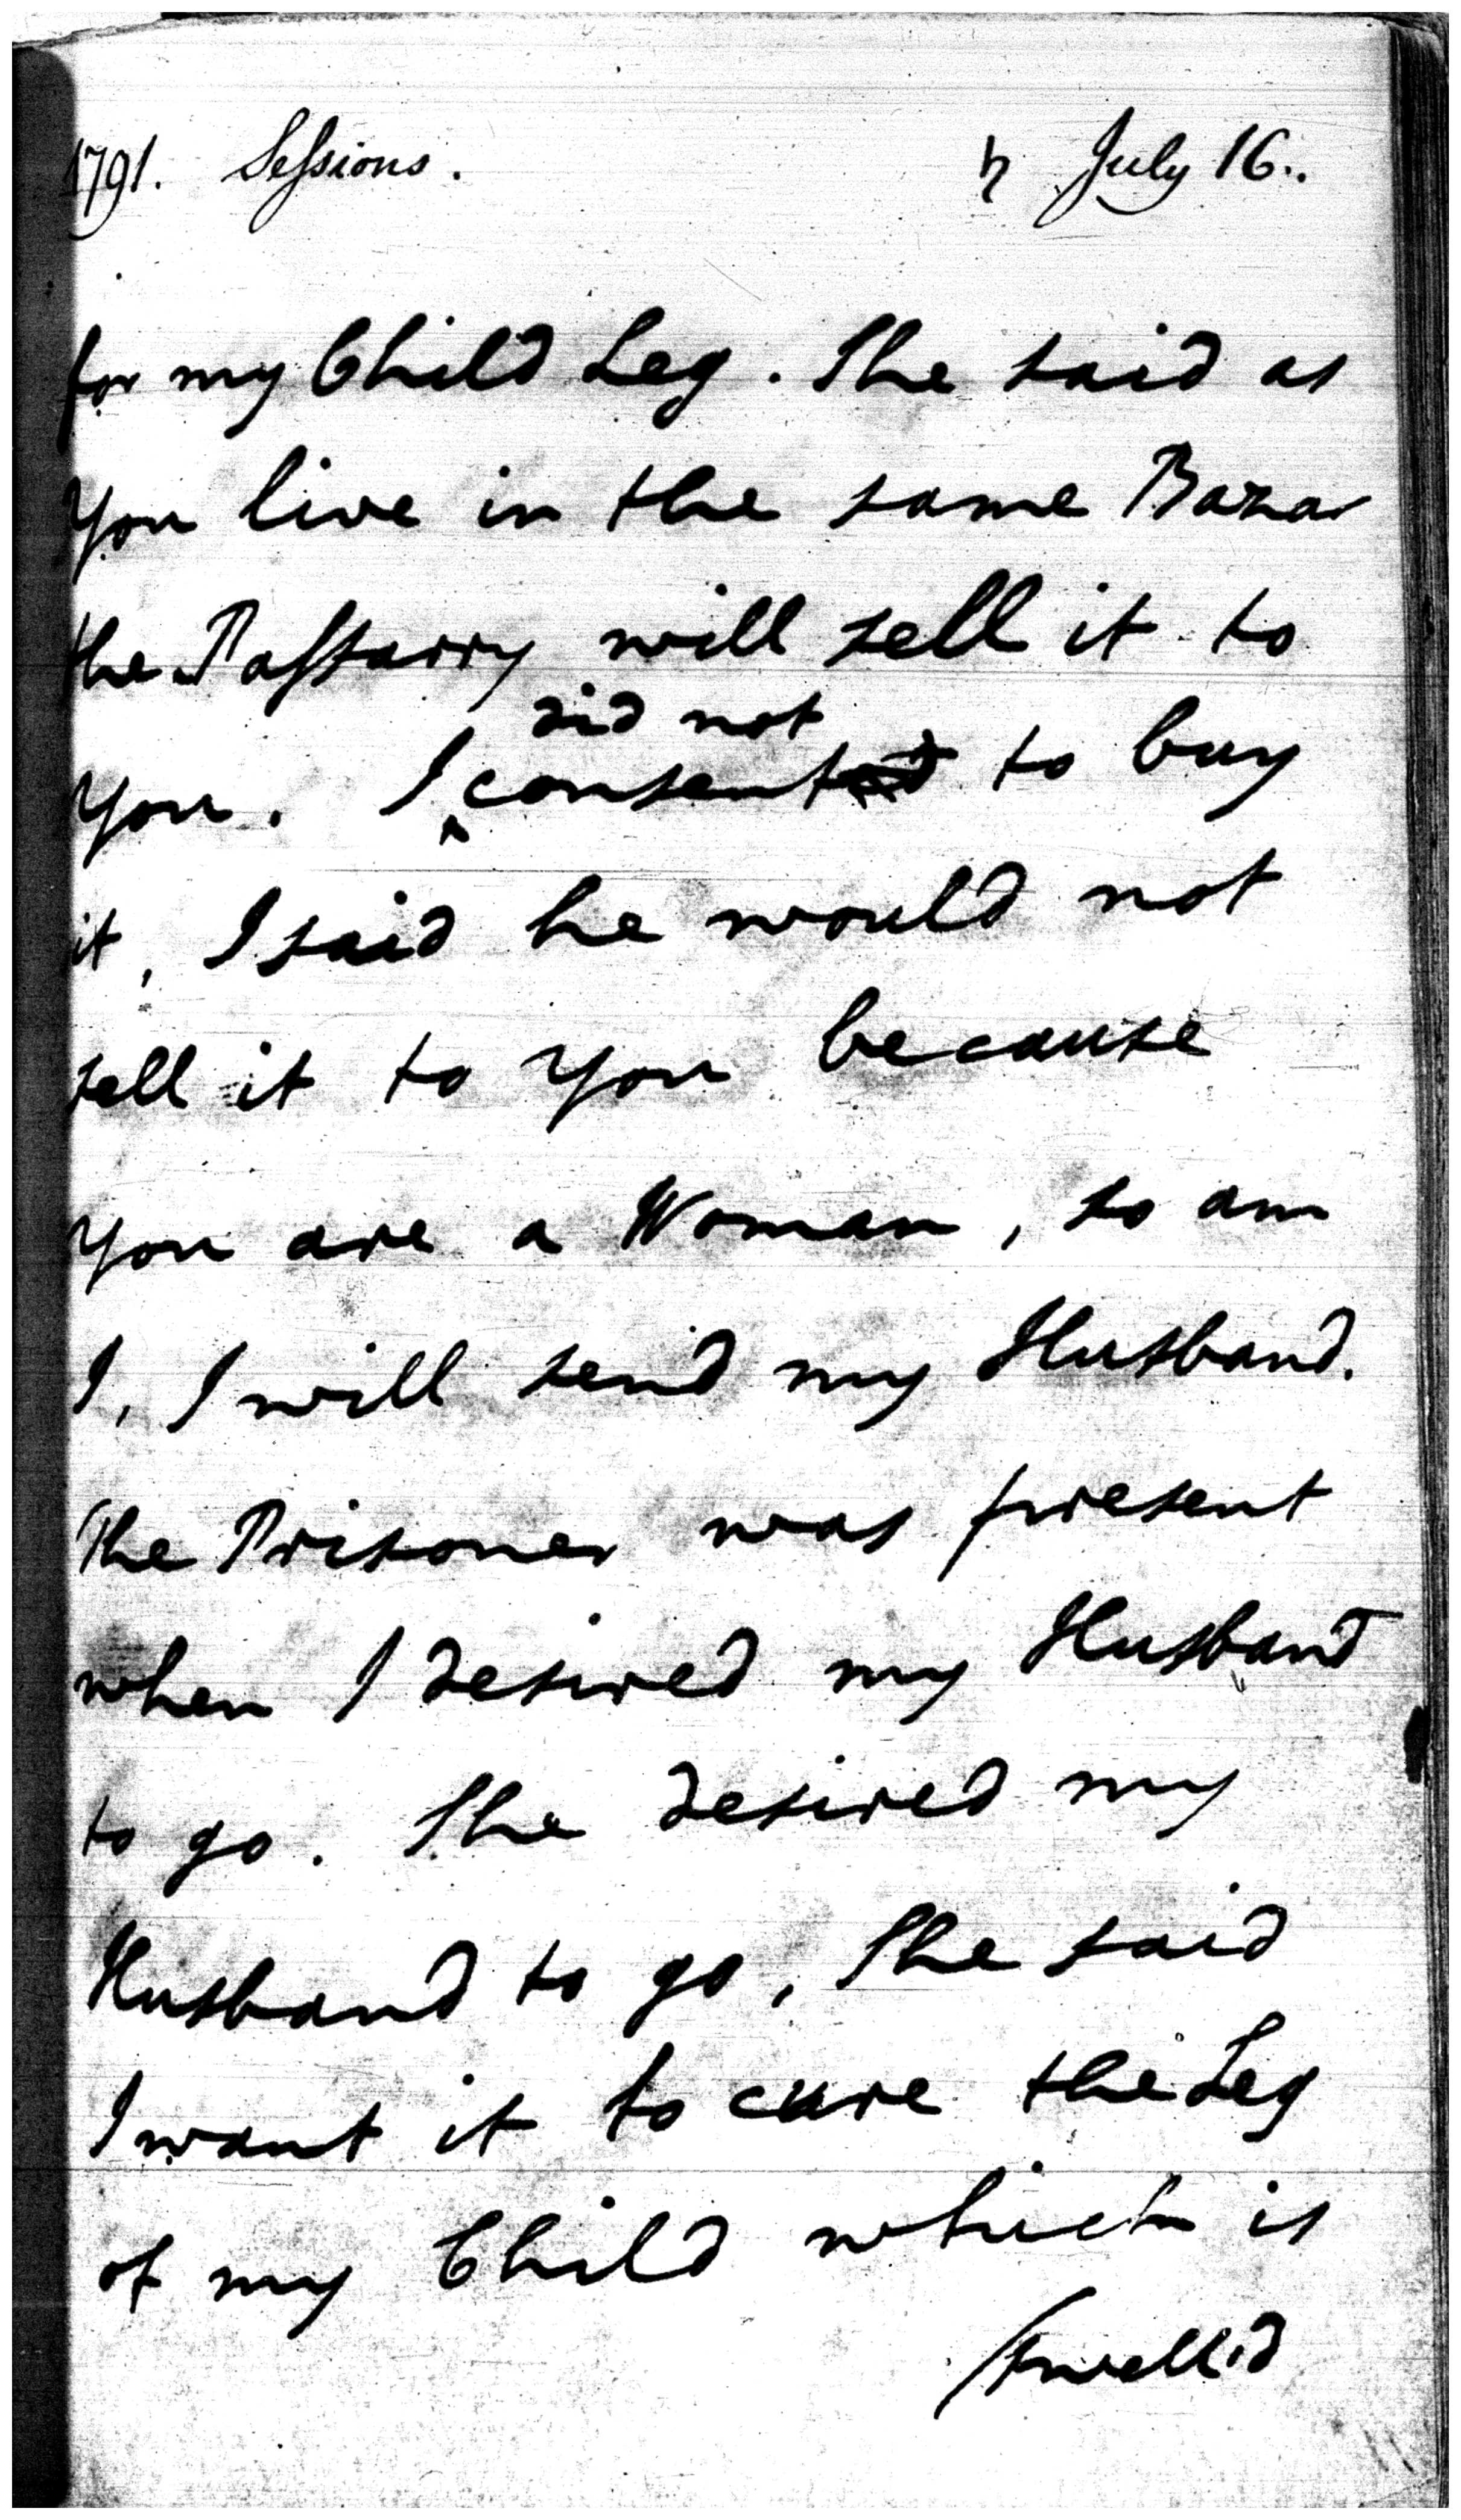 1791. Sessions. ♄ July 16..
for my Child Leg. She said as
you live in the same Bazar
the Passarry will sell it to
did not
you. I ^ consented to buy
it, I said he would not
sell it to you because
you are a Woman, so am
I, I will send my Husband.
The Prisoner was present
when I desired my Husband
to go. She desired my
Husband to go, She said
I want it to cure the Leg
of my Child which is
/swell'd